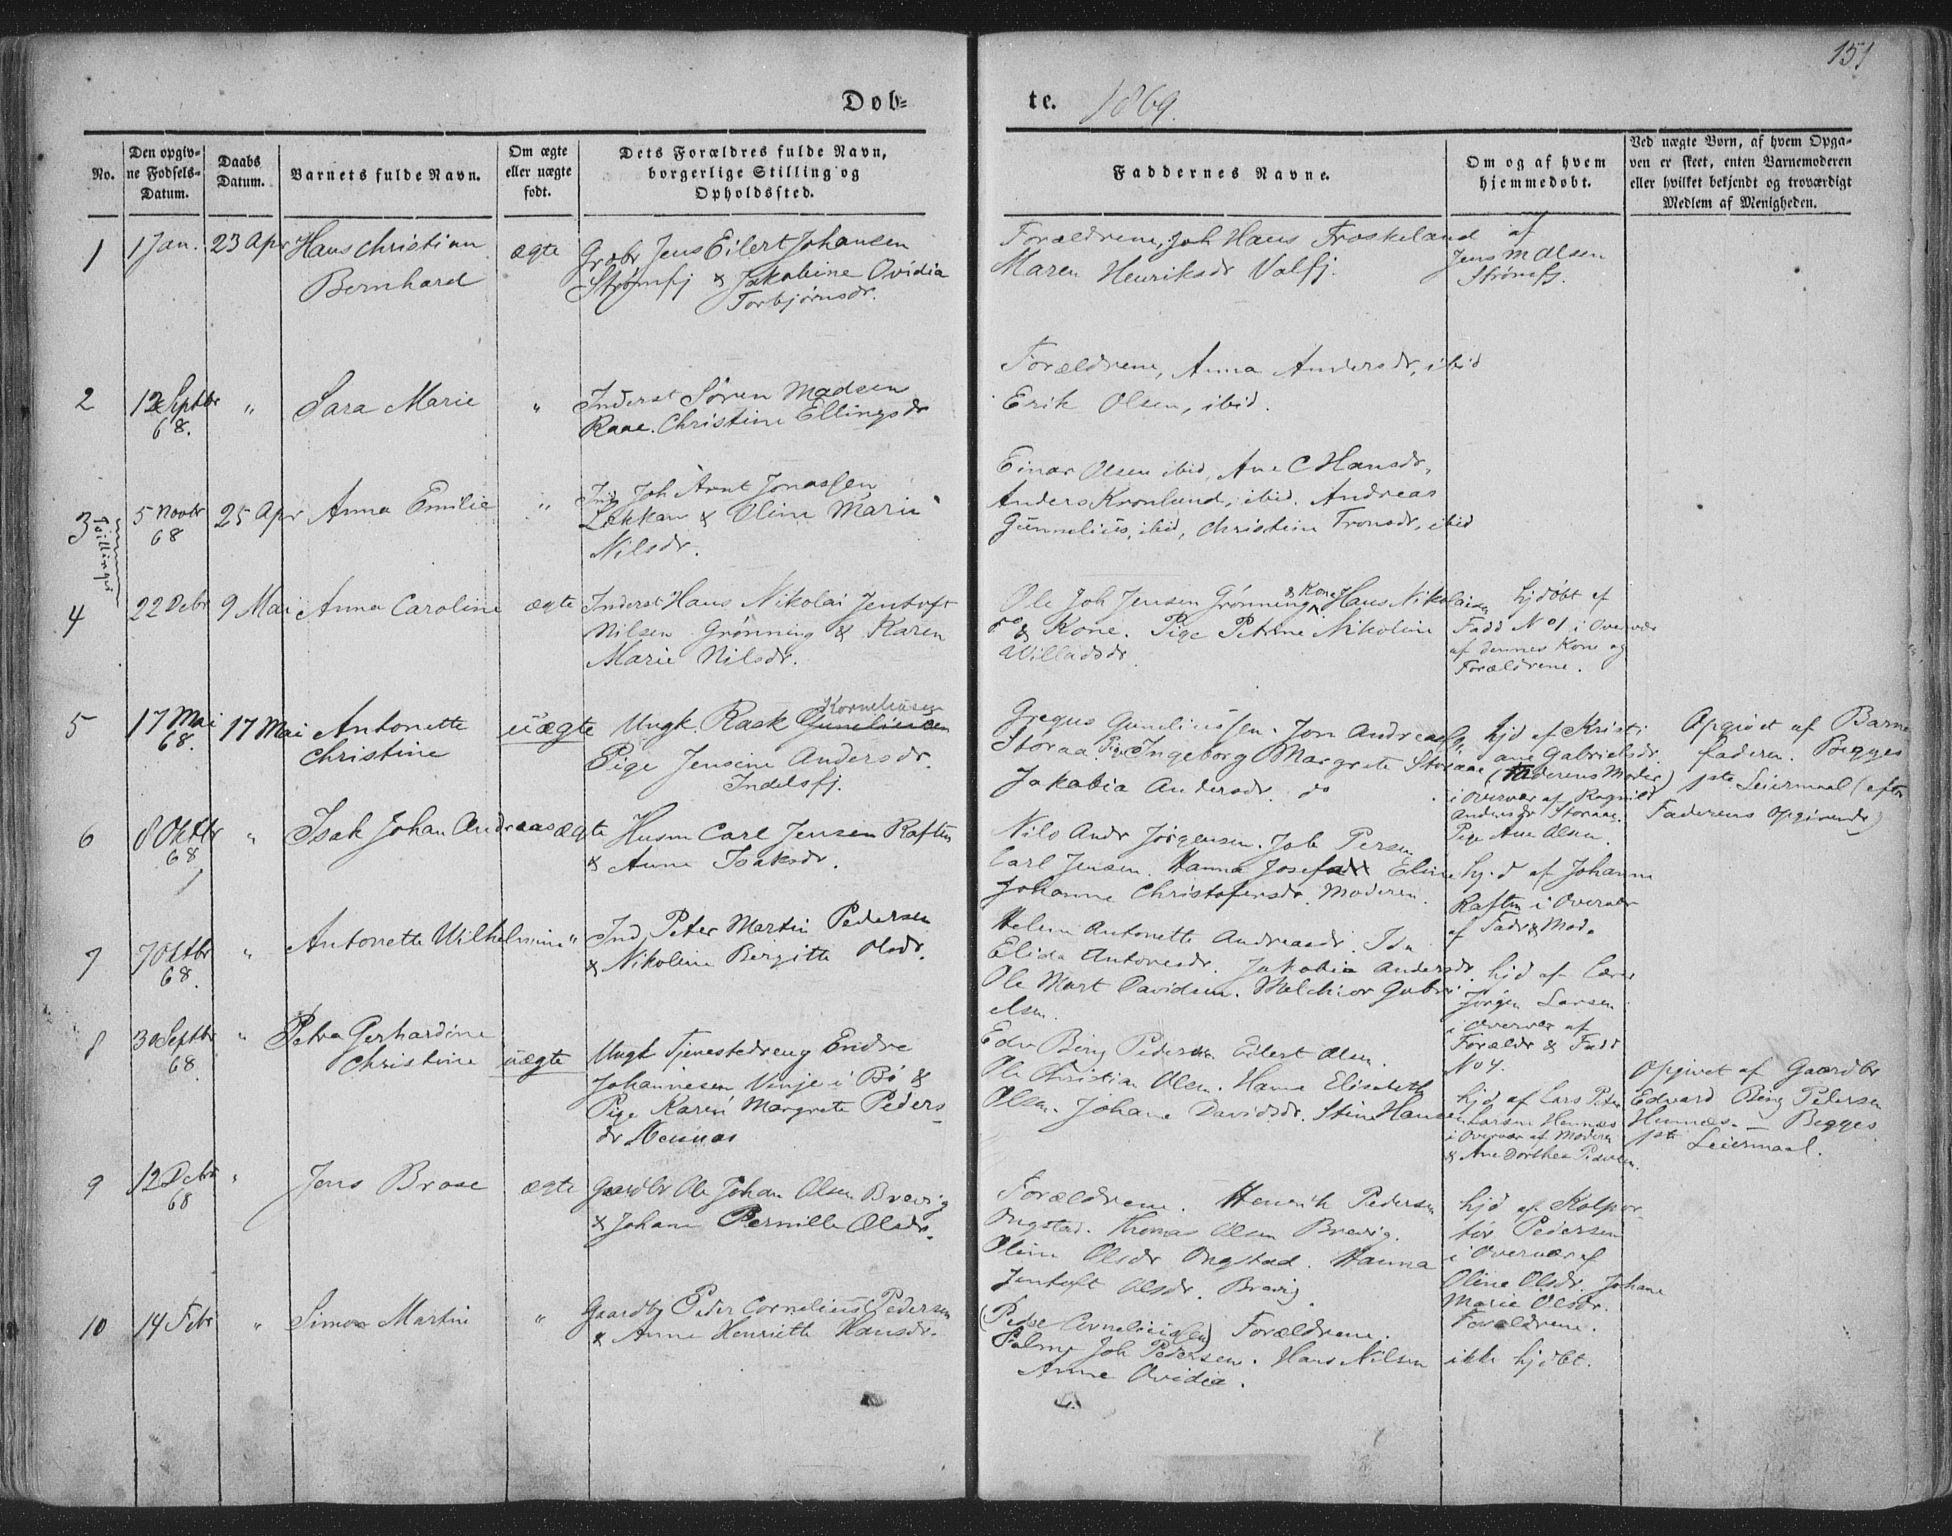 151
Døb-
te. 1869.
No.
Den opgiv-
ne Fødsels-
Datum.
Daabs
Datum.
Barnets fulde Navn.
Om ægte
eller uægte
født.
Dets Forældres fulde Navn,
borgerlige Stilling og
Opholdssted.
Faddernes Navne.
Om og af hvem
hjemmedøbt.
Ved uægte Børn, af hvem Opga-
ven er skeet, enten Barnemoderen
eller hvilket bekjendt og troværdigt
Medlem af Menigheden.
1
1 Jan.
23 Apr
Hans Christian
Bernhard
ægte
Grdbr Jens Eilert Johansen
Strømfj & Jakobine Ovidia
Torbjørnsdr.
Forældrene, Joh Hans Froskeland
Maren Henriksdr Valfj.
af
Jens M Olsen
Strømfj.
2
12 Septbr
68.
"
Sara Marie
"
Inderst Søren Madsen
Raae. Christine Ellingsdr
Forældrene, Anna Andersdr, ibid
Erik Olsen, ibid.
3
Tvillinge
5 Novbr
68
25 Apr
Anna Emilie
"
Ind Joh Arnt Jonassen
Lekkan & Oline Marie
Nilsdr.
Einar Olsen ibid, Ane C Hansdr,
Anders Kronlund, ibid. Andreas
Gunnelius, ibid, Christein Tronsdr, ibid
4
22 Debr
9 Mai
Anna Caroline
ægte
Inderst Hans Nikolai Jentoft
Nilsen Grønning & Karen
Marie Nilsdr.
Ole Joh Jensen Grønning & Kone, Hans Nikolaisen
do & Kone. Pige Petrine Nikoline
Willadsdr.
hjdøbt af
Fadd No 1 i Overvær
af dennes Kone og
Forældrene.
5
17 Mai
68.
17 Mai
Antonette
Christine
uægte
Ungk. Rask Guneliussen Korneliusen
Pige Jensine Andersdr.
Indelsfj.
Gregus Guneliussen. Jorn Andreas
Storaa Pige Ingeborg Margrete Storaae
Jakobia Andersdr. do
hjd af Kristi
ane Gabrielsdr.
(Faderens Moder)
i Overvær af Ragnild
Andersdr Storaa.
Pige Ane Olsen.
Opgivet af Barne
faderen. Begges
1ste Leiermaal (efter
Faderens Opgivende)
6
8 Oktbr
68
"
Isak Johan Andreas
ægte
Husm Carl Jensen Raften
& Anne Isaksdr.
Nils Andr Jørgensen. Job Persen
Carl Jensen. Hanna Josefa Eline
Johanne Christofersdr. Moderen.
hjd af Johanne
Raften i Overvær
af Fadr & Mod.
7
7 Oktbr
68.
"
Antonette Wilhelmine
"
Ind. Peter Martin Pedersen
& Nikoline Bergitte Olsdr.
Helene Antonette Andreasdr. Ida
Elida Antonesdr. Jakobia Andersdr.
Ole Mart Davidsen. Melchior Gabri
elsen.
hjd af Lærer
Jørgen Larsen
i Overvær af
Forældr & Fadd
No 4.
8
30 Septbr
68.
"
Petra Gerhardine
Christine
uægte
Ungk Tjenestedreng Endre
Johannesen Vinje i Bø &
Pige Karen Margrete Peders
dr
Edv Bing Pedersen Eilert Olsen.
Ole Christian Olsen. Hanna Elisabeth
Olsen. Johane Davidsdr. Stine Hansen
hjd af Lars Peter
Larsen Hennes
i Overvær af Moderen
& Ane Dorthea Pedersen.
Opgivet af Gaardbr
Edvard Bing Petersen
Hennes. — Begges
1ste Leiermaal.
9
12 Debr
68
"
Jens Brose
ægte
Gaardbr Ole Johan Olsen Brevig
& Johane Pernille Olsdr.
Forældrene. Henrik Pedersen
Ongstad. Thomas Olsen Brevig.
Oline Olsdr Ongstad. Hanna
Jentoft Olsdr. Brevig
hjd af Kolpor-
tør Pedersen
i Overvær af
Oline Olsdr. Johane
Marie Olsdr.
Forældrene.
10
14 Febr
"
Simon Martin
"
Gaardbr Peder Cornelius Pedersen
& Anne Henriette Hansdr.
(Peder Corneliussen) Forældrene.
Joh Pedersen. Hans Nilsen
Anne Ovidia.
ikke hjdbt.